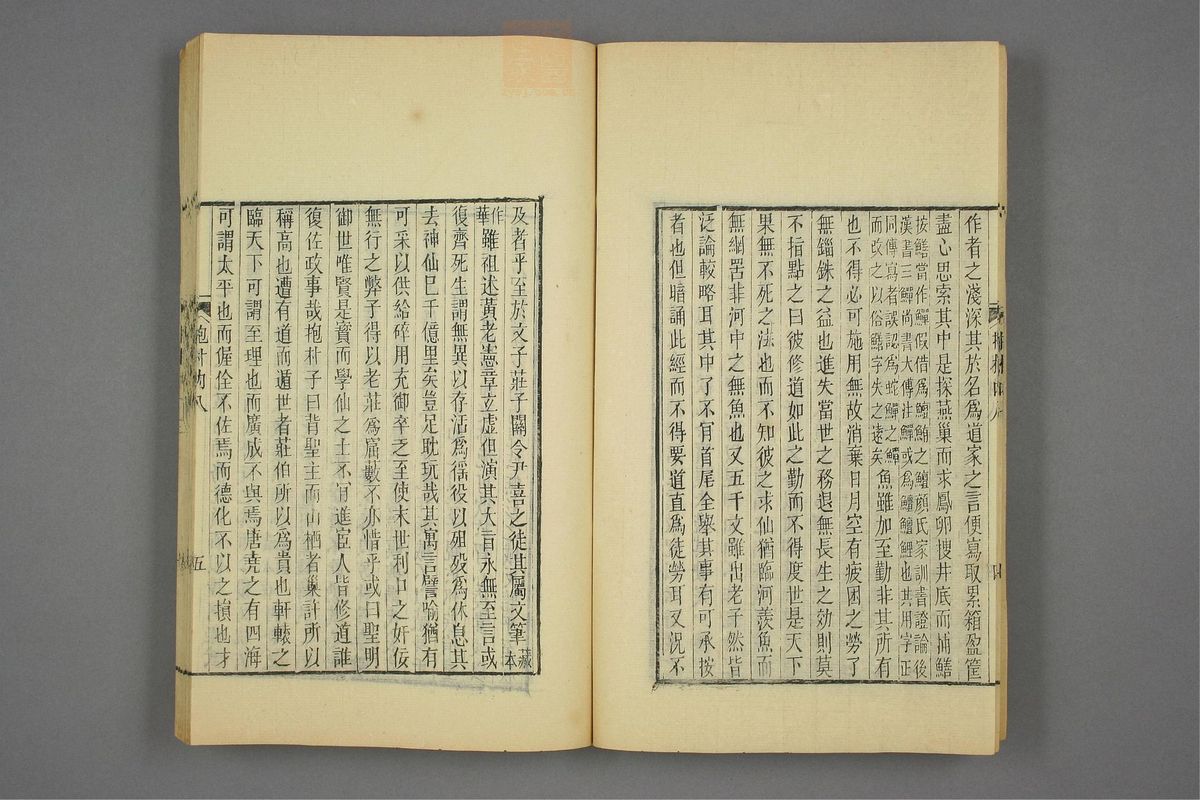 作者之淺深其於名爲道家之言便寫取累箱盈筐
盡心思索其中是探燕巢而求鳳卵搜井底而捕鱔
按鱔當作鱓假借爲鱣鮪之鱣顔氏家訓書證論後
漢書三鱓尚書大傅注鱓或爲鱣鱣鯉也其用字正
同傳寫者誤認爲蛇鱓之鱓
而改之以俗鱔字失之遠矣
魚雖加至勤非其所有
也不得必可施用無故消棄日月空有疲困之勞了
無錙銖之益也進失當世之務退無長生之効則莫
不指點之曰彼修道如此之勤而不得度世是天下
果無不死之法也而不知彼之求仙猶臨河羨魚而
無網罟非河中之無魚也又五千文雖出老子然皆
泛論較略耳其中了不肎首尾全舉其事有可承按
者也但暗誦此經而不得要道直爲徒勞耳又況不
及者乎至於文子莊子關令尹喜之徒其屬文筆
藏
本
作
華
雖祖述黃老憲章立虛但演其大旨永無至言或
復齊死生謂無異以存活爲徭役以殂歿爲休息其
去神仙已千億里矣豈足耽玩哉其寓言譬喻猶有
可采以供給碎用充御卒乏至使末世利口之奸佞
無行之弊子得以老莊爲窟藪不亦惜乎或曰聖明
御世唯賢是寶而學仙之士不肎進宦人皆修道誰
復佐政事哉抱朴子曰背聖主而山栖者巢許所以
稱高也遭有道而遁世者莊伯所以爲貴也軒轅之
臨天下可謂至理也而廣成不與焉唐堯之有四海
可謂太平也而偓佺不佐焉而德化不以之損也才
抱朴內八
五